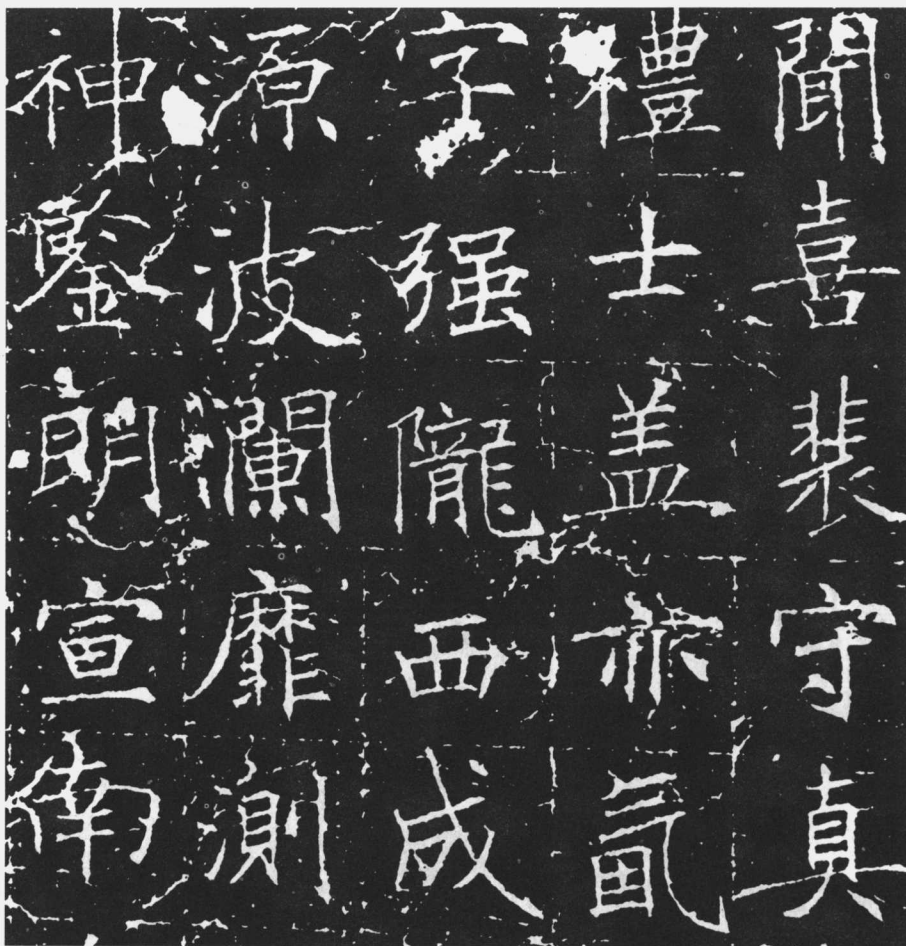 聞喜裴守真
禮士盖亦
字强隴西成
源波瀾靡測
神鑒朗宣